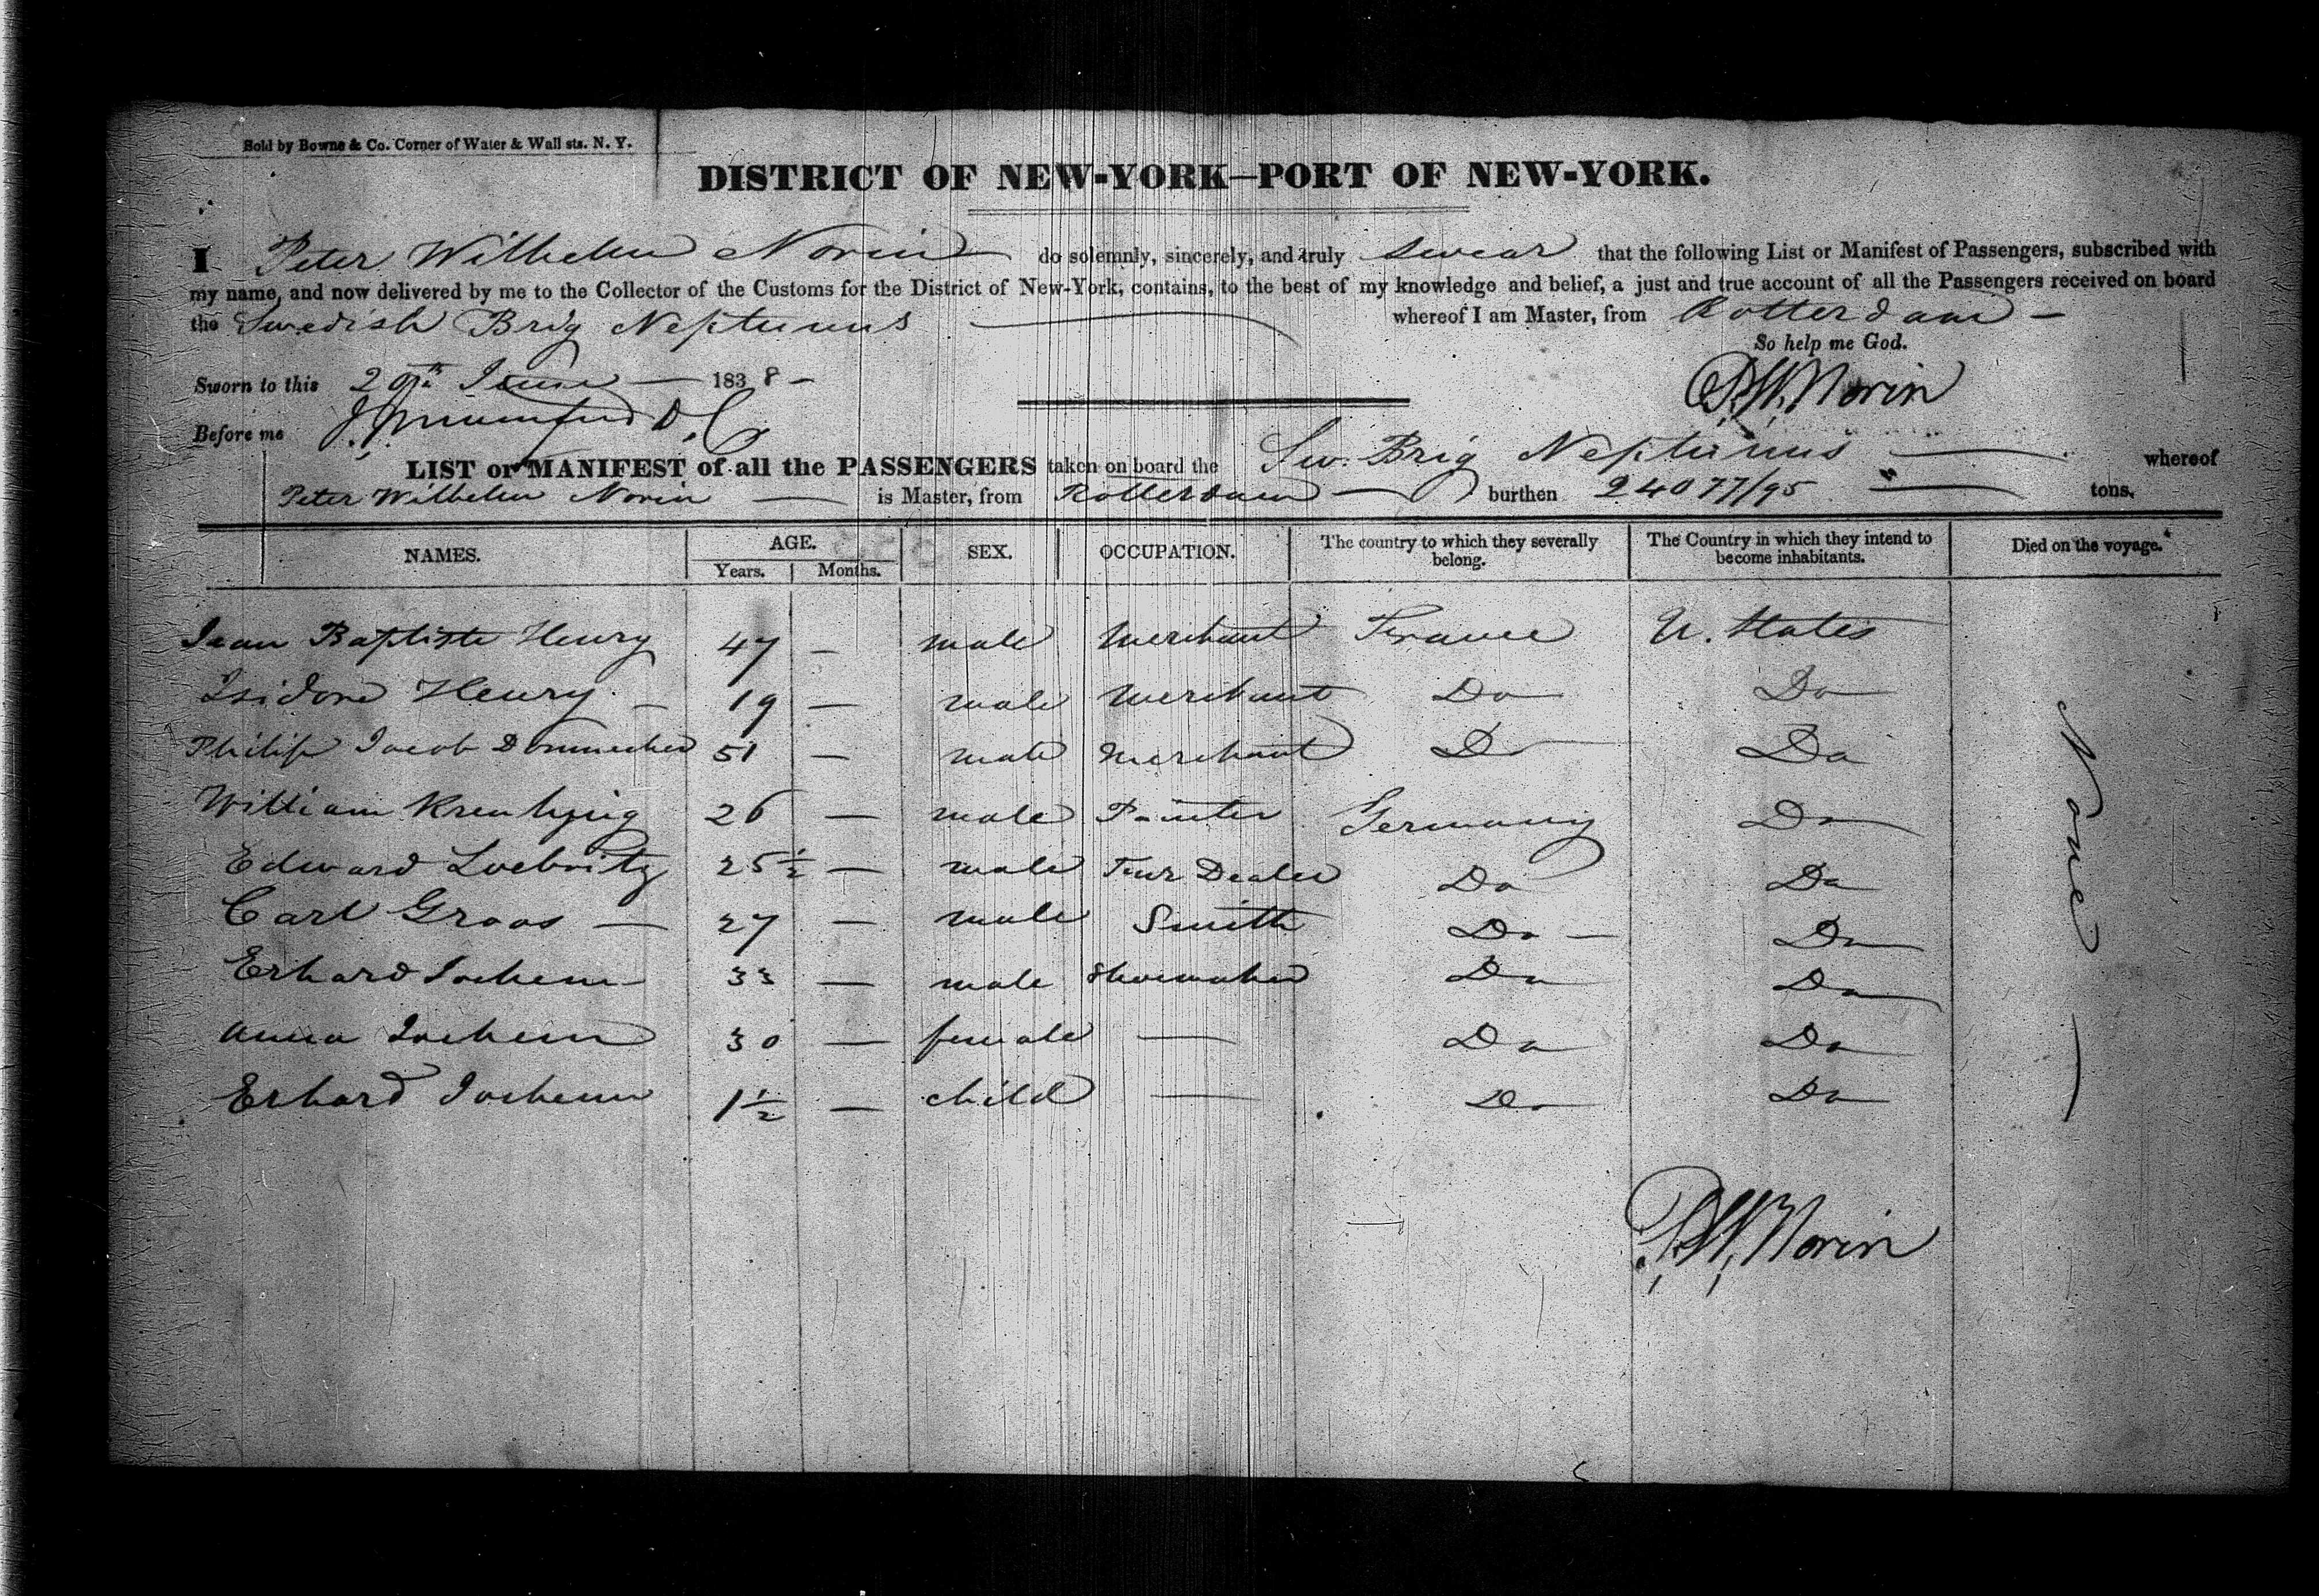 Sold by Bowne & Co. Corner of Water & Wall sts. N. Y.
DISTRICT OF NEW-YORK—PORT OF NEW-YORK.
I Peter Wilhelm Norin do solemnly, sincerely, and truly swear that the following List or Manifest of Passengers, subscribed with
my name, and now delivered by me to the Collector of the Customs for the District of New-York, contains, to the best of my knowledge and belief, a just and true account of all the Passengers received on board
the Swedish Brig Neptunus whereof I am Master, from Rotterdam —
So help me God.
Sworn to this 29th June — 1838 —
P. W. Norin
Before me D. C.
LIST or MANIFEST of all the PASSENGERS taken on board the Sw. Brig Neptunus — whereof
Peter Wilhelm Norin — is Master, from Rotterdam — burthen 240 77/95 " — tons.
NAMES. AGE. Years. Months. SEX. OCCUPATION. The country to which they severally belong. The Country in which they intend to become inhabitants. Died on the voyage.
Jean Baptiste Henry 47 — male Merchant France U. States
Isidore Henry — 19 — male Merchant Do Do
Philip Jacob 51 — male Merchant Do Do
William 26 — male Painter Germany Do
Edward Loebnitz 25½ — male Fur Dealer Do Do
Carl Groos — 27 — male Smith Do — Do
Erhard Jochem 33 — male Shoemaker Do Do
Anna Jochem 30 — female — Do Do
Erhard Jochem 1½ — child — Do Do
None —
P. W. Norin